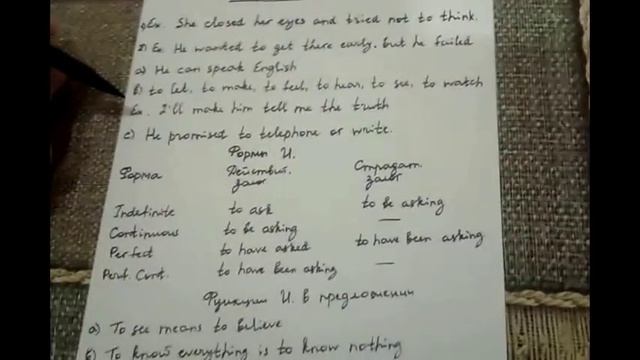 1) Ex. She closed her eyes and tried not to think.
2) Ex. He wanted to get there early, but he failed
a) He can speak English
b) to let, to make, to feel, to hear, to see, to watch
Ex. I'll make him tell me the truth
c) He promised to telephone or write.
Формы И.
Форма Действит. залог Страдат. залог
Indefinite to ask to be asking
Continuous to be asking —
Perfect to have asked to have been asking
Perf. Cont. to have been asking —
Функции И. в предложении
a) To see means to believe
б) To know everything is to know nothing